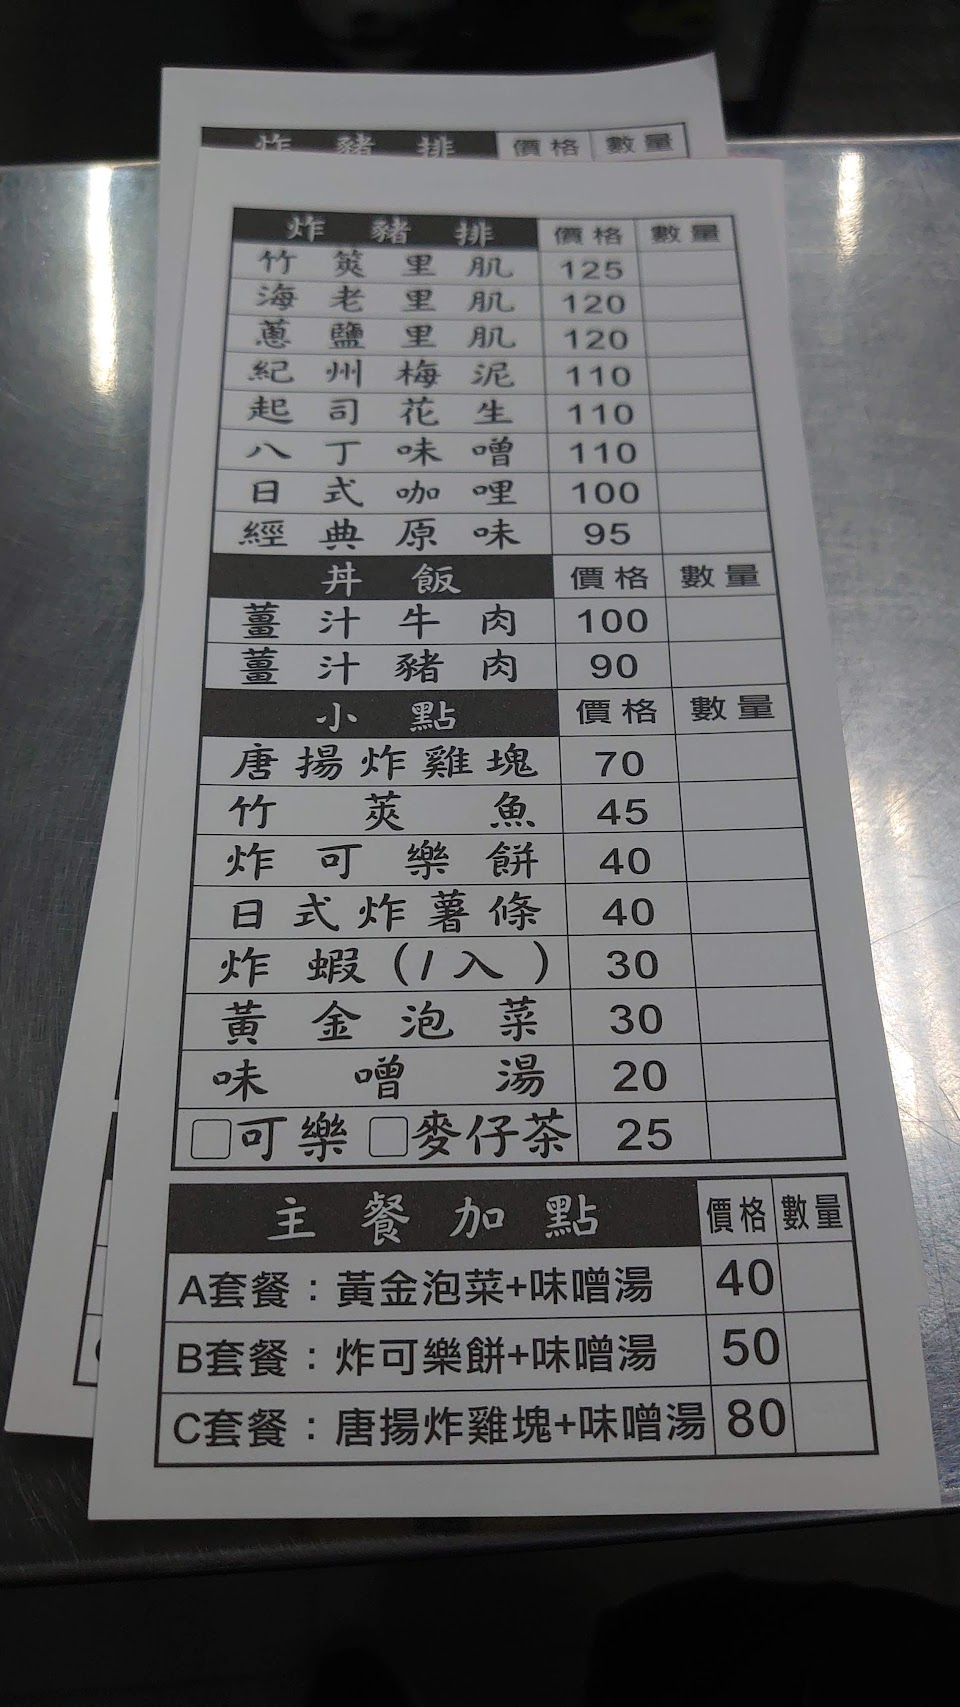 炸豬排 價格 數量
炸豬排 價格 數量
竹筴里肌 125
海老里肌 120
蔥鹽里肌 120
紀州梅泥 110
起司花生 110
八丁味噌 110
日式咖哩 100
經典原味 95
丼飯 價格 數量
薑汁牛肉 100
薑汁豬肉 90
小點 價格 數量
唐揚炸雞塊 70
竹莢魚 45
炸可樂餅 40
日式炸薯條 40
炸蝦(1入) 30
黃金泡菜 30
味噌湯 20
□可樂 □麥仔茶 25
主餐加點 價格 數量
A套餐：黃金泡菜+味噌湯 40
B套餐：炸可樂餅+味噌湯 50
C套餐：唐揚炸雞塊+味噌湯 80